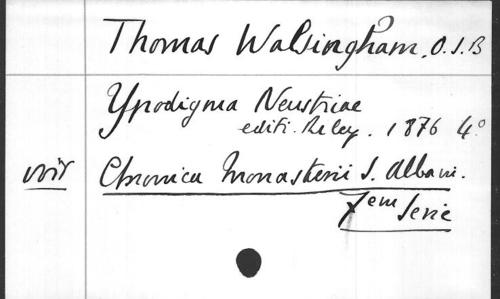 Thomas Walsingham. O.S.B
Ypodigma Neustriae
edit. Riley. 1876 4°
voir Chronica Monasterii S. Albani.
7em Serie